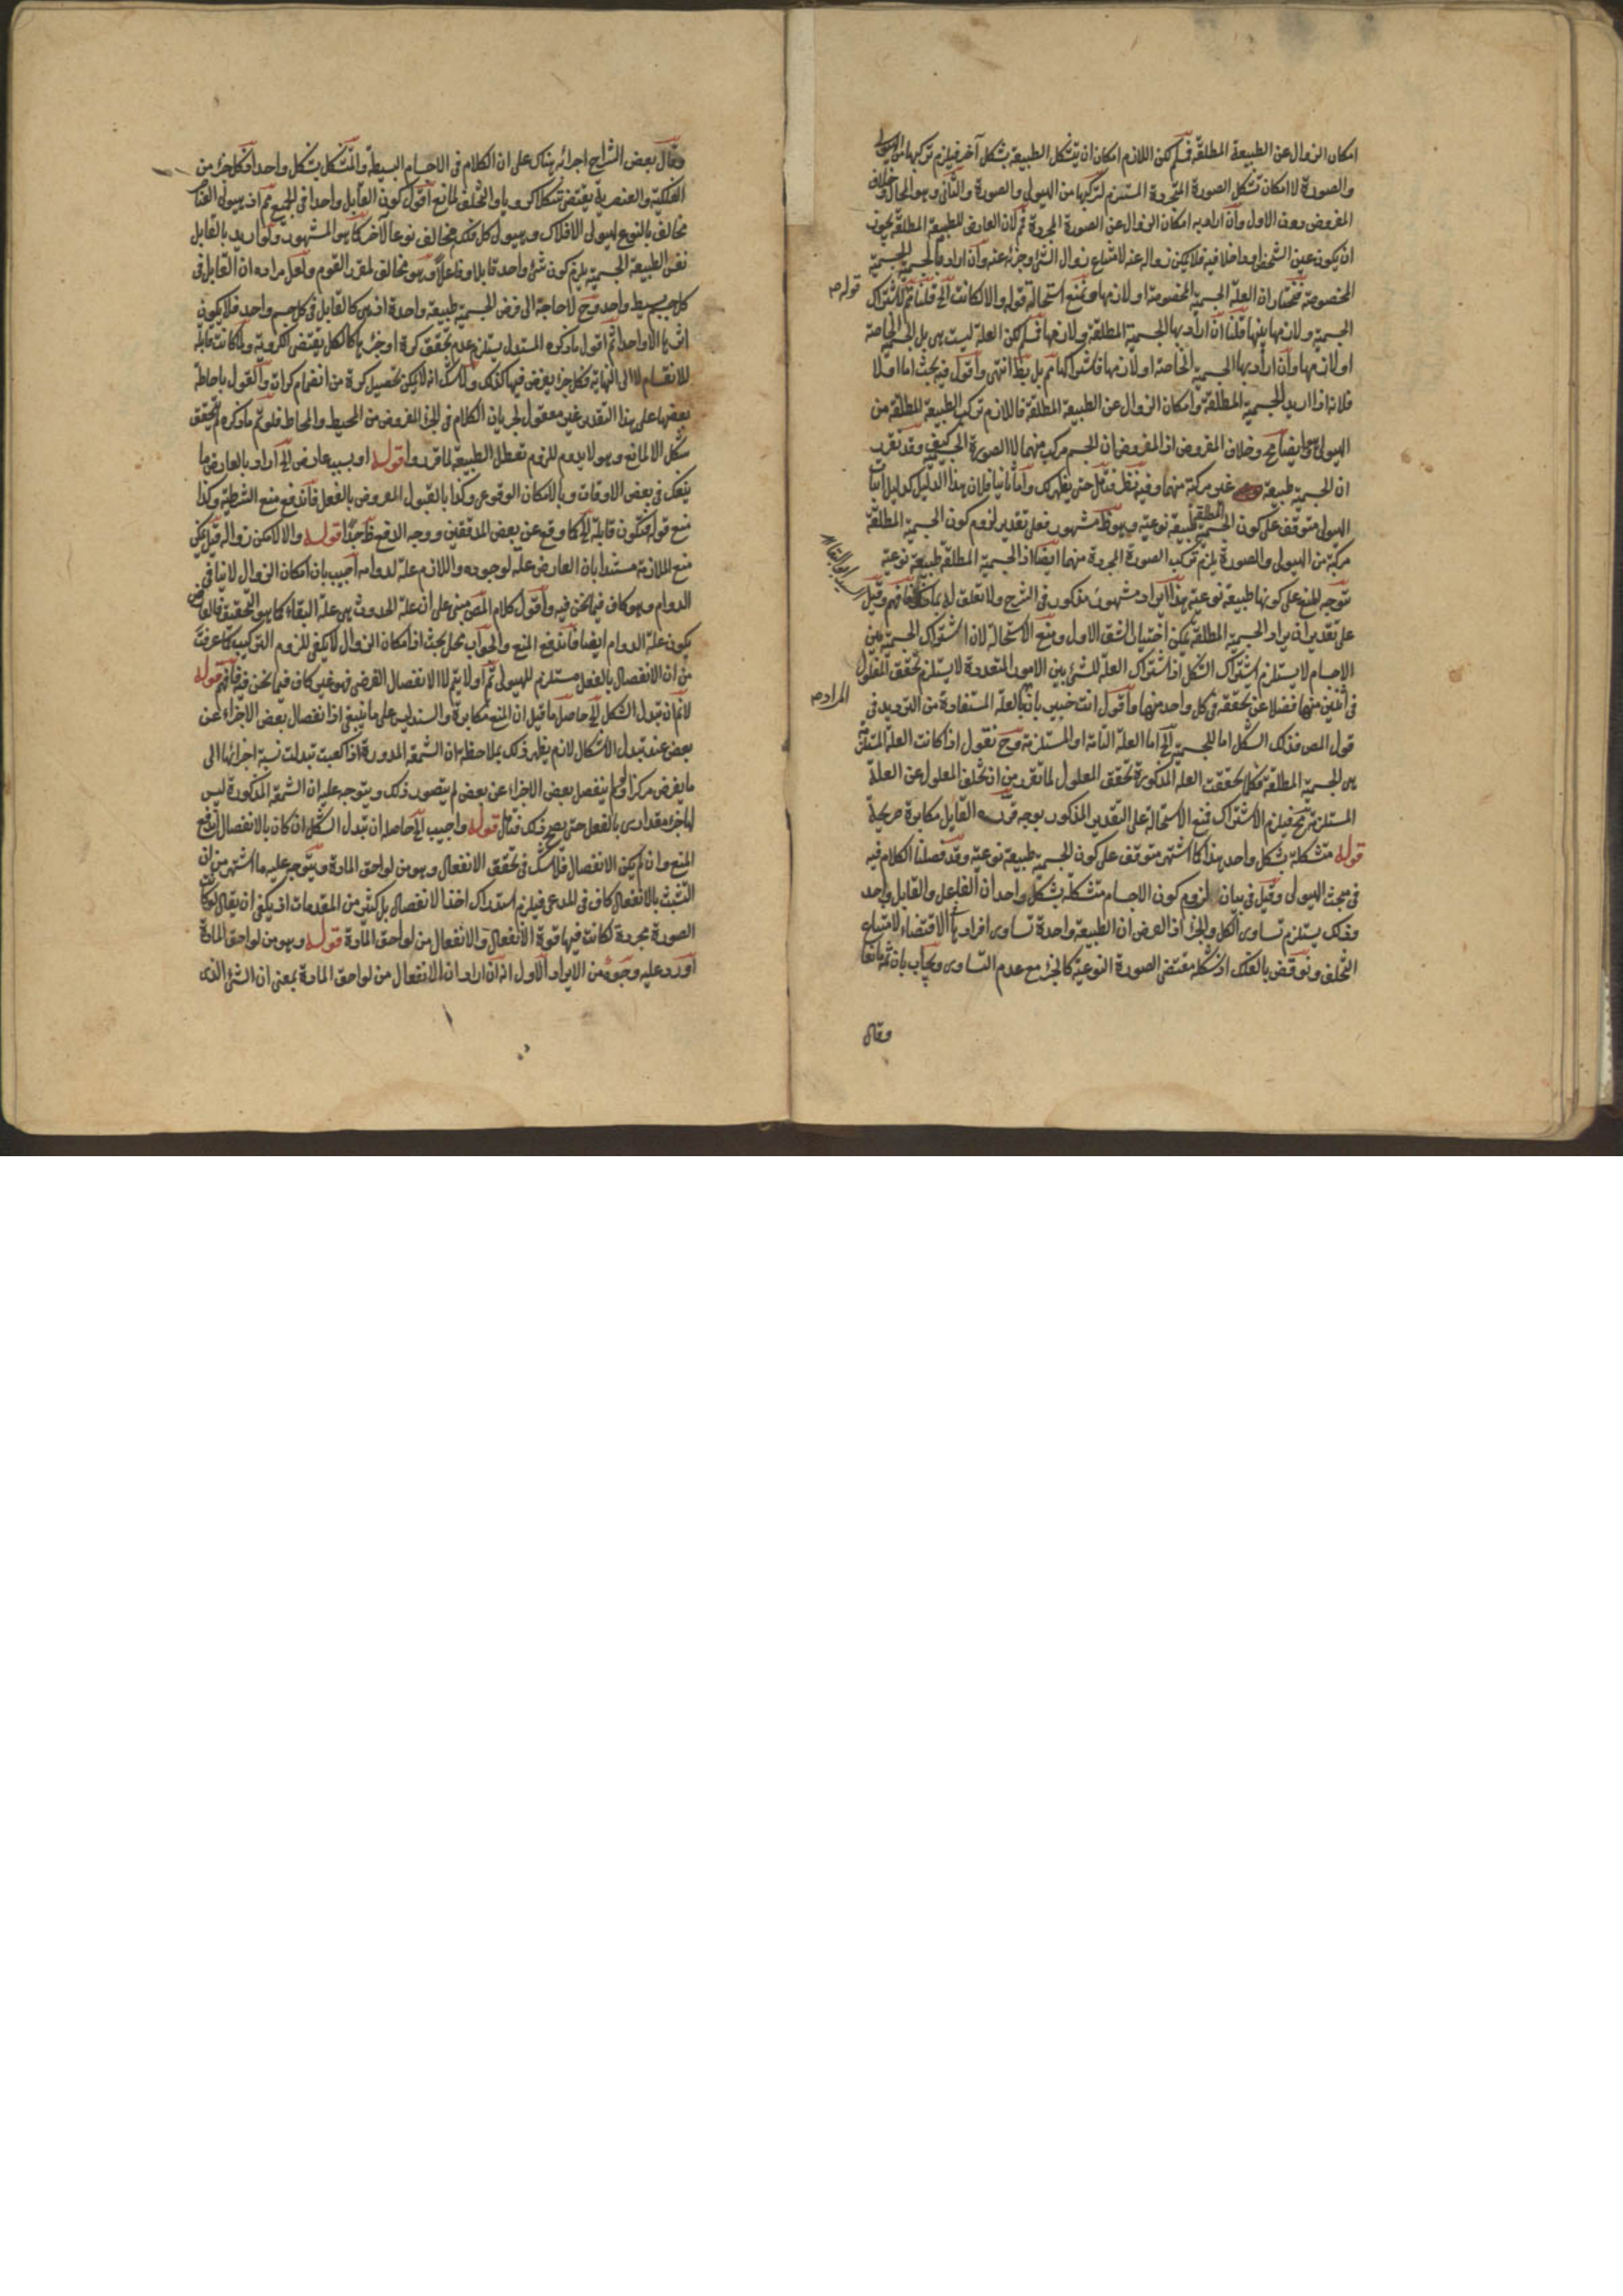 امكان الزوال عن الطبيعة المطلقة فسلم لكن اللازم امكان ان يتشكل الطبيعة بشكل آخر فيلزم تركبها من الهيولى
والصورة لا امكان تشكل الصورة المجردة المستلزم لتركبها من الهيولى والصورة والثانى وهو المحال وخلاف
المفروض دون الاول وان اراد به امكان الزوال عن الصورة المجردة ثم لان العارض للطبيعة المطلقة يجوز
ان يكون عين الشخص او داخلا فيه فلا يمكن زواله عنه لامتناع زوال الشئ وجزئه عنه وان اراد بالجسمية الجسمية
المخصوصة فنختار ان العلة الجسمية المخصوصة او لازمها ونمنع استحالة قوله والا لكانت الخ قلنا ثم لاشتراك
قوله
الجسمية ولازمها بينها قلنا ان اراد بها الجسمية المطلقة ولازمها فسلم لكن العلة ليست هى بل الجسمية الخاصة
او لازمها وان اراد بها الجسمية الخاصة او لازمها فاشتراكها ثم بل بط انتهى واقول فيه بحث اما اولا
فلانه اذا اريد الجسمية المطلقة وامكان الزوال عن الطبيعة المطلقة فاللازم تركب الطبيعة المطلقة من
الهيولى وايضا مح وخلاف المفروض اذ المفروض ان الجسم مركب منهما لا الصورة الجسمية كيف وقد تقرر
ان الجسمية طبيعة غير مركبة منهما وفيه نظر فتأمل حتى يظهر لك واما ثانيا فلان هذا الدليل كدليل اثبات
الهيولى متوقف على كون الجسمية المطلقة طبيعة نوعية وهو ظ مشهور فعلى تقدير لزوم كون الجسمية المطلقة
مركبة من الهيولى والصورة يلزم تركب الصورة المجردة منهما ايضا اذ الجسمية المطلقة طبيعة نوعية
يتوجه المنع على كونها طبيعة نوعية هذا ايراد مشهور مذكور فى الشرح ولا تعلق له بما فافهم وقيل
على تقدير ان يراد الجسمية المطلقة يمكن اختيار الشق الاول ومنع الاستحالة لان اشتراك الجسمية بين
الاجسام لا يستلزم اشتراك الشكل اذ اشتراك العلة للشئ بين الامور المتعددة لا يستلزم تحقق المعلول
فى اثنين منها فضلا عن تحققه فى كل واحد منها واقول انت خبير بان بالعلة المستفادة من الترديد فى
المراد
قول المص فذلك الشكل اما للجسمية الخ اما العلة التامة او المستلزمة وح نقول اذا كانت العلة المستلزمة
هى الجسمية المطلقة فكلما تحققت العلة المذكورة تحقق المعلول لما تقرر من ان تخلف المعلول عن العلة
المستلزمة مح فيلزم الاشتراك فمنع الاستحالة على التقدير المذكور بوجه قرره القايل مكابرة صريحة
قوله متشكلة بشكل واحد هذا كما اشتهر متوقف على كون الجسمية طبيعة نوعية وقد فصلنا الكلام فيه
فى مبحث الهيولى وقيل فى بيان لزوم كون الاجسام متشكلة بشكل واحد ان الفاعل والقابل واحد
وذلك يستلزم تساوى الكل والجزء اذ الفرض ان الطبيعة واحدة تساوى افرادها فى الاقتضاء لامتناع
التخلف ونوقض بالفلك اذ شكله مقتضى الصورة النوعية كالجزء مع عدم التساوى ويجاب بان ثمة مانعا
وقال
وقال بعض الشراح اجرائه هناك على ان الكلام فى الاجسام البسيطة والمتشكل بشكل واحد فكل جزء من
الفلكية والعنصرية يقتضى شكلا كرويا والتخلف لمانع اقول كون القابل واحدا فى الجميع ثم اذ هيولى العناصر
مخالف بالنوع لهيولى الافلاك وهيولى كل فلك مخالف نوعا لآخر كما هو المشهور ولو اريد بالقابل
نفس الطبيعة الجسمية يلزم كون شئ واحد قابلا وفاعلا وهو مخالف لمقرر القوم ولعل مراده ان القابل فى
كل جسم بسيط واحد وح لا حاجة الى فرض الجسمية طبيعة واحدة اذ هى كالقابل فى كل جسم واحد فلا يكون
اثرها الا واحدا ثم اقول ما ذكره المستدل يستلزم عدم تحقق كرة اذ جزءها كالكل يقتضى الكروية ولما كانت قابلة
للانقسام لا الى النهاية فكل جزء يفرض فيها كذلك ولا شك انه لا يمكن تحصيل كرة من انضمام كرات والقول باحاطة
بعضها على هذا التقدير غير معقول لجريان الكلام فى الجزء المفروض من المحيط والمحاط فلو تم ما ذكره لم يتحقق
شكل الا لمانع وهو لا يدوم للزوم تعطل الطبيعة لما قرروا قوله او بسبب عارض الخ اراد بالعارض ما
ينفك فى بعض الاوقات وبالامكان الوقوعى وكذا بالقبول المفروض بالفعل فاندفع منع الشرطية وكذا
منع قوله فتكون قابلة الخ كما وقع عن بعض المدققين ووجه الدفع ظ جدا قوله والا لامكن زواله قيل يمكن
منع الملازمة مستندا بان العارض علة لوجوده واللازم علة لدوامه اجيب بان امكان الزوال لا ينافى
الدوام وهو كاف فيما نحن فيه واقول كلام المص مبنى على ان علة الحدوث هى علة البقاء كما هو التحقيق فالعارض
يكون علة الدوام ايضا فاندفع المنع والجواب محل بحث اذ امكان الزوال لا يكفى للزوم التركيب كما عرفت
من ان الانفصال بالفعل مستلزم للهيولى ثم اولا يتم لا الانفصال الفرضى فهو غير كاف فيما نحن فيه فافهم قوله
لانم ان تبدل الشكل الخ حاصل ما قيل ان المنع مكابرة والسند ليس على ما ينبغى اذ انفصال بعض الاجزاء عن
بعض عند تبدل الاشكال لازم يظهر ذلك بملاحظة ان الشمعة المدورة اذا كعبت تبدلت نسبة اجزائها الى
ما يفرض مركزا ولو لم ينفصل بعض الاجزاء عن بعض لم يتصور ذلك ويتوجه عليه ان الشمعة المذكورة ليس
لها جزء مقدارى بالفعل حتى يصح ذلك فتأمل قوله واجيب الخ حاصله ان تبدل الشكل ان كان بالانفصال اندفع
المنع وان لم يكن الانفصال فلا شك فى تحقق الانفعال وهو من لواحق المادة ويتوجه عليه ما اشتهر من ان
التشبث بالانفعال كاف فى المدعى فيلزم استدراك اخذ الانفصال بل كثير من المقدمات اذ يكفى ان يقال لو كان
الصورة مجردة لكانت فيها قوة الانفعال والانفعال من لواحق المادة قوله وهو من لواحق المادة
اورد عليه وجوه من الايراد الاول انه ان اراد ان الانفعال من لواحق المادة بمعنى ان الشئ الذى